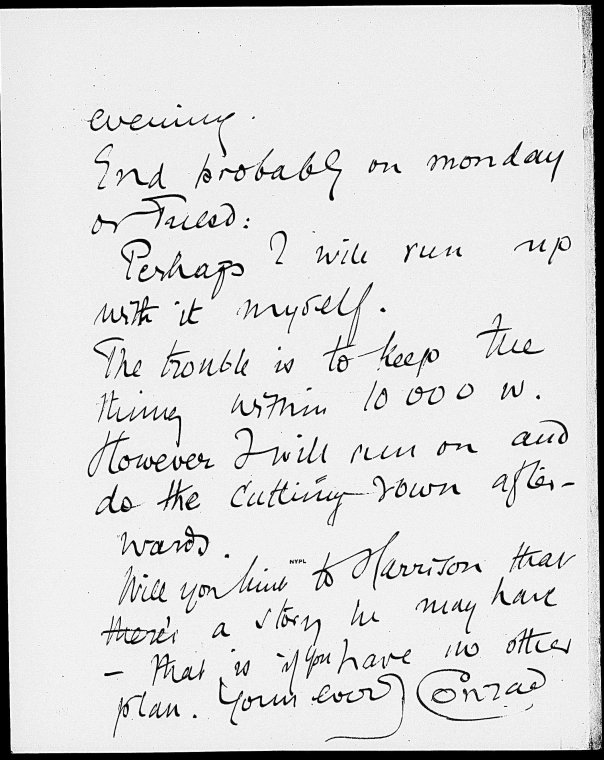 evening.
End probably on monday
or Tuesd:
Perhaps I will run up
with it myself.
The trouble is to keep the
thing within 10 000 w.
However I will run on and
do the cutting down after-
wards.
NYPL
Will you hint to Harrison that
there's a story he may have
– that is if you have no other
plan. Yours ever Conrad